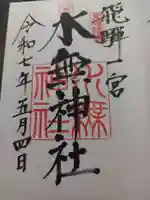 飛騨一宮
水無神社
令和七年五月四日